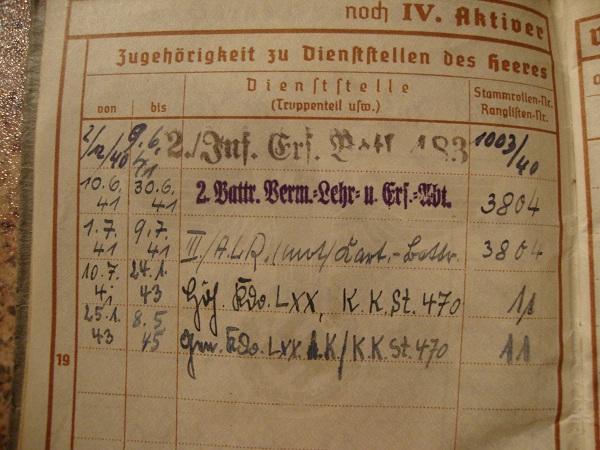 noch IV. Aktiver
Zugehörigkeit zu Dienststellen des Heeres
von bis Dienststelle (Truppenteil usw.) Stammrollen-Nr. Ranglisten-Nr.
2/12/40 9.6.41 2./Inf. Ers. Batl. 483 1003/40
10.6.41 30.6.41 2. Battr. Verm.-Lehr- u. Ers.-Abt. 3804
1.7.41 9.7.41 II/A.L.R. (mot) Kart.-Battr. 3804
10.7.41 24.1.43 Höh. Kdo. LXX, K.K.St. 470 11
25.1.43 8.5.45 Gen. Kdo. LXX A.K/K.K.St. 470 11
19